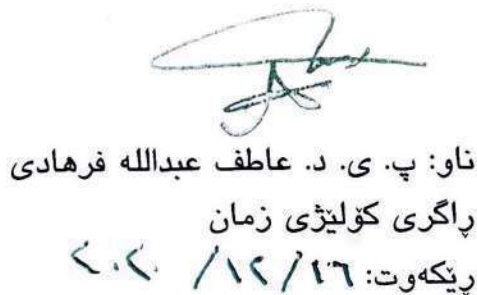 ناو: پ. ی. د. عاطف عبدالله فرهادی
ڕاگری کۆلیژی زمان
ڕێکەوت: ٢٠٢٠ /١٢/٢٦